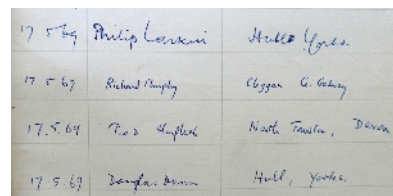 17 5 69 Philip Larkin Hull Yorks.
17 5 69 Richard Murphy Cleggan Co. Galway
17.5.69 Ted Hughes North Tawton, Devon
17.5.69 Douglas Dunn Hull, Yorks.